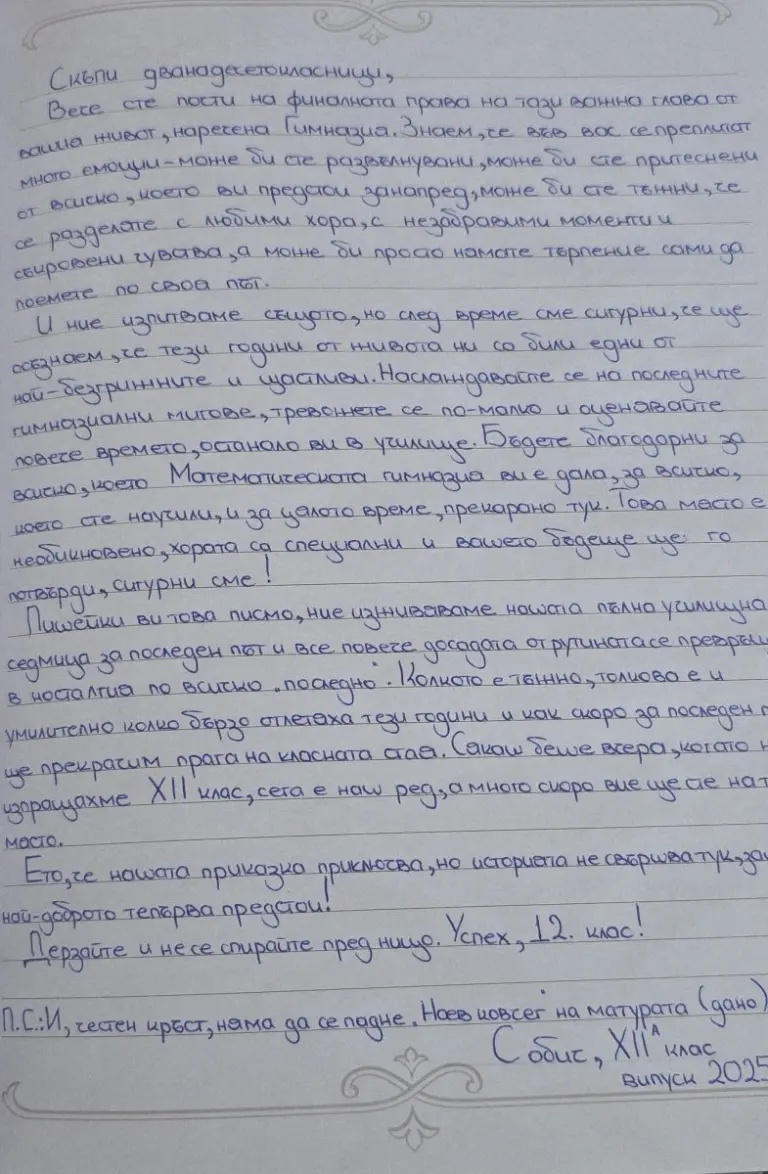 Скъпи дванадесетокласници,
Вече сте почти на финалната права на тази важна глава от
вашия живот, наречена Гимназия. Знаем, че във вас се преплитат
много емоции – може би сте развълнувани, може би сте притеснени
от всичко, което ви предстои занапред, може би сте тъжни, че
се разделяте с любими хора, с незабравими моменти и
съкровени чувства, а може би просто нямате търпение сами да
поемете по своя път.
И ние изпитваме същото, но след време сме сигурни, че ще
осъзнаем, че тези години от живота ни са били едни от
най-безгрижните и щастливи. Наслаждавайте се на последните
гимназиални мигове, тревожете се по-малко и оценявайте
повече времето, останало ви в училище. Бъдете благодарни за
всичко, което Математическата гимназия ви е дала, за всичко,
което сте научили, и за цялото време, прекарано тук. Това място е
необикновено, хората са специални и вашето бъдеще ще го
потвърди, сигурни сме!
Пишейки ви това писмо, ние изживяваме нашата пълна училищна
седмица за последен път и все повече досадата от рутината се превръщ
в носталгия по всичко „последно“. Колкото е тъжно, толкова е и
умилително колко бързо отлетяха тези години и как скоро за последен п
ще прекрачим прага на класната стая. Сякаш беше вчера, когато н
изпращахме XII клас, сега е наш ред, а много скоро вие ще сте на т
място.
Ето, че нашата приказка приключва, но историята не свършва тук, за
най-доброто тепърва предстои!
Дерзайте и не се спирайте пред нищо. Успех, 12. клас!
П.С.: И, честен кръст, няма да се падне „Наев ковсег“ на матурата (дано)
С обич, XIIА клас
випуск 2025